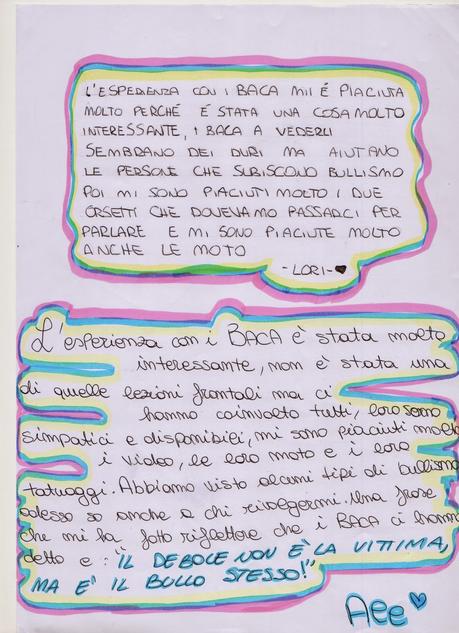 L'ESPERIENZA CON I BACA MI É PIACIUTA
MOLTO PERCHÉ É STATA UNA COSA MOLTO
INTERESSANTE, I BACA A VEDERLI
SEMBRANO DEI DURI MA AIUTANO
LE PERSONE CHE SUBISCONO BULLISMO
POI MI SONO PIACIUTI MOLTO I DUE
ORSETTI CHE DOVEVAMO PASSARCI PER
PARLARE E MI SONO PIACIUTE MOLTO
ANCHE LE MOTO
-LORI-
L'esperienza con i BACA è stata molto
interessante, non è stata una
di quelle lezioni frontali ma ci
hanno coinvolto tutti, loro sono
simpatici e disponibili, mi sono piaciuti molto
i video, le loro moto e i loro
tatuaggi. Abbiamo visto alcuni tipi di bullismo
adesso so anche a chi rivolgermi. Una frase
che mi ha fatto riflettere che i BACA ci hanno
detto e: "IL DEBOLE NON È LA VITTIMA,
MA E' IL BULLO STESSO!"